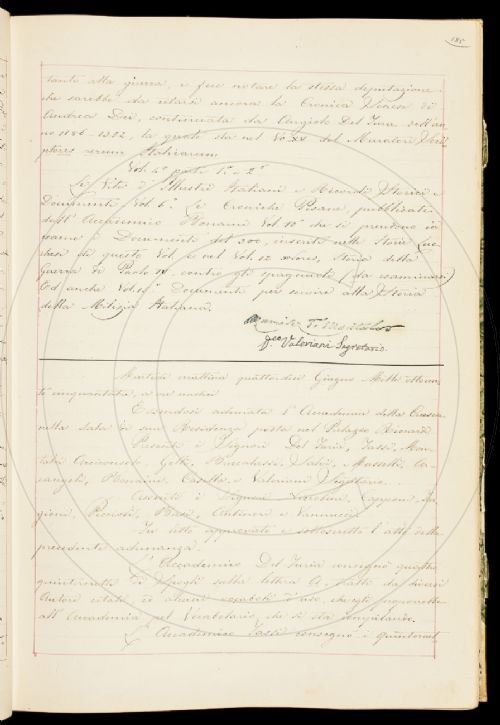 185
tanti alla guerra, e fece notare la stessa deputazione
che sarebbe da citarsi ancora la Cronica Sanese di
Andrea Dei, continuata da Angelo Del Tura dall'an
no 1186-1352, la quale sta nel Vo. XV del Muratori Scri
ptores rerum Italicarum
Vol. 4° parte 1ª e 2ª
Le Vite d'Illustri Italiani e Ricordi Storici e
Documenti Vol. 6°. Le Croniche Pisane, pubblicate
dall' Accademico Bonaini Vol 10° che si prendono in
esame i Documenti del 300, inseriti nelle Storie Luc
chesi di questo Vol. e nel Vol. 12 ancora, Storia della
Guerra di Paolo IV, contro gli spagnuoli (da esaminarsi)
Ed anche Vol. 15° Documenti per servire alla Storia
della Milizia Italiana.
Gio. Valeriani Segretario.
Martedì mattina quattordici Giugno Mille ottocen
to cinquantatre, a ore undici
Essendosi adunata l'Accademia della Crusca
nella stanza di sua Residenza posta nel Palazzo Riccardi
Presenti i Signori Del Furia, Tassi, Man
tati Arciconsolo, Gelli, Barcalassi, Salvi, Masselli, Ar
cangeli, Bonaini, Casella, e Valeriani Segretario.
Assenti i Signori Nicolini, Capponi, Ta
gioni, Becchi, Basi, Antinori e Vannucci
Fu letto approvato e sottoscritto l'atto della
precedente adunanza.
L' Accademico Del Furia consegnò quattro
quinternetti di spogli sulla lettera A, fatti da diversi
Autori citati, ed alcuni vocaboli d'uso, che egli proponeva
all' Accademia pel Vocabolario che si sta compilando.
L' Accademico Tassi consegnò i quinternet